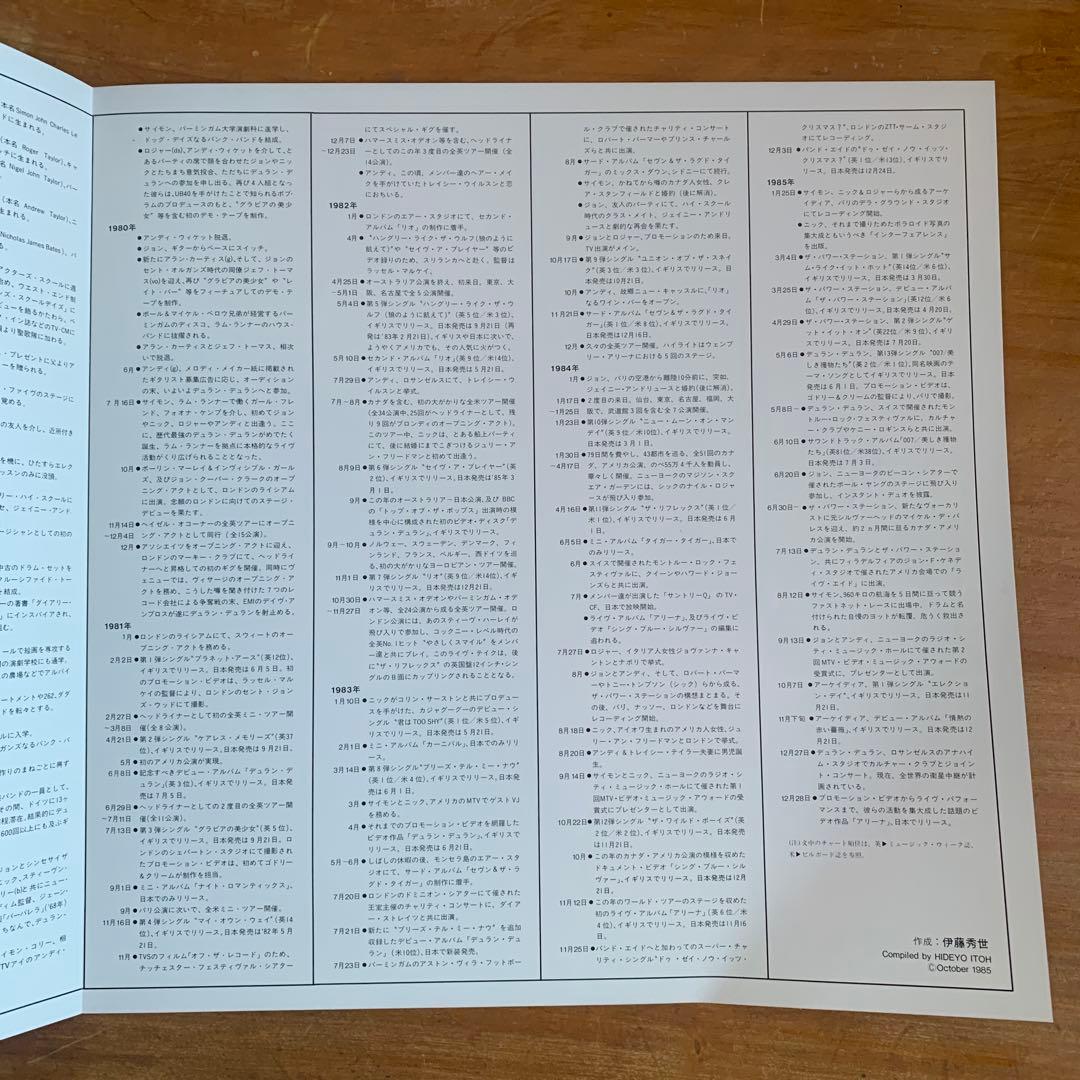 本名Simon John Charles Le
ドに生まれる。
(本名 Roger Taylor)、キャ
ッチに生まれる。
名 Nigel John Taylor)、バー
(本名 Andrew Taylor)、ニ
生まれる。
Nicholas James Bates)、バ
●サイモン、バーミンガム大学演劇科に進学し、
ドッグ・デイズなるパンク・バンドを結成。
●ロジャー(ds)、アンディ・ウィケットを介して、と
あるパーティの席で顔を合わせたジョンやニッ
クとたちまち意気投合、ただちにデュラン・デュ
ランへの参加を申し出る。再び4人組となっ
た彼らは、UB40を手がけたことで知られるボブ・
ラムのプロデュースのもと、“グラビアの美少
女”等を含む初のデモ・テープを制作。
1980年
●アンディ・ウィケット脱退。
●ジョン、ギターからベースにスイッチ。
●新たにアラン・カーティス(g)、そして、ジョンの
セント・オルガンズ時代の同僚ジェフ・トーマ
ス(vo)を迎え、再び“グラビアの美少女”や“レ
イト・バー”等をフィーチュアしてのデモ・テ
ープを制作。
●ポール&マイケル・ベロウ兄弟が経営するバー
ミンガムのディスコ、ラム・ランナーのハウス・
バンドに抜擢される。
●アラン・カーティスとジェフ・トーマス、相次
いで脱退。
6月●アンディ(g)、メロディ・メイカー紙に掲載され
たギタリスト募集広告に応じ、オーディション
の末、いよいよデュラン・デュランへと参加。
7月16日●サイモン、ラム・ランナーで働くガール・フレ
ンド、フォオナ・ケンプを介し、初めてジョン
やニック、ロジャーやアンディと出逢う。ここ
に、歴代最強のデュラン・デュランがめでたく
誕生、ラム・ランナーを拠点に本格的なライヴ
活動がくり広げられることとなった。
10月●ポーリン・マーレイ&インヴィシブル・ガール
ズ、及びジョン・クーパー・クラークのオープ
ニング・アクトとして、ロンドンのライシアム
に出演、念願のロンドンに向けてのステージ・
デビューを果たす。
11月14日●ヘイゼル・オコーナーの全英ツアーにオープニ
~12月4日 ング・アクトとして同行(全15公演)。
12月●アソシエイツをオープニング・アクトに迎え、
ロンドンのマーキー・クラブにて、ヘッドライナ
ーへと昇格しての初のギグを開催。同時にヴ
ェニューでは、ヴィサージのオープニング・アク
トを務め、こうした噂を聞き付けた7つのレ
コード会社による争奪戦の末、EMIのデイヴ・ア
ンブロスが遂にデュラン・デュランを射止める。
1981年
1月●ロンドンのライシアムにて、スウィートのオープ
ニング・アクトを務める。
2月2日●第1弾シングル“プラネット・アース”(英12位)、
イギリスでリリース。日本発売は6月5日。初の
プロモーション・ビデオは、ラッセル・マル
ケイの監督により、ロンドンのセント・ジョン
ズ・ウッドにて撮影。
2月27日●ヘッドライナーとして初の全英ミニ・ツアー開
~3月8日 催(全8公演)。
4月21日●第2弾シングル“ケアレス・メモリーズ”(英37
位)、イギリスでリリース。日本発売は9月21日。
5月●初のアメリカ公演が実現。
6月8日●記念すべきデビュー・アルバム「デュラン・デ
ュラン」(英3位)、イギリスでリリース。日本発
売は7月5日。
6月29日●ヘッドライナーとしての2度目の全英ツアー開
~7月11日 催(全11公演)。
7月13日●第3弾シングル“グラビアの美少女”(英5位)、
イギリスでリリース。日本発売は9月21日。ロン
ドンのシェパートン・スタジオにて撮影され
たプロモーション・ビデオは、初めてゴドリー
&クリームが制作を担当。
9月1日●ミニ・アルバム「ナイト・ロマンティックス」、
日本でのみリリース。
9月●パリ公演に次いで、全米ミニ・ツアー開催。
11月16日●第4弾シングル“マイ・オウン・ウェイ”(英14
位)、イギリスでリリース。日本発売は'82年5月
21日。
11月●TVSのフィルム「オフ・ザ・レコード」のため、
チッチェスター・フェスティヴァル・シアター
にてスペシャル・ギグを催す。
12月7日●ハマースミス・オデオン等を含む、ヘッドライナ
~12月23日 ーとしてのこの年3度目の全英ツアー開催(全
14公演)。
●アンディ、この頃、メンバー達のヘアー・メイ
クを手がけていたトレイシー・ウイルスンと恋
におちいる。
1982年
1月●ロンドンのエアー・スタジオにて、セカンド・
アルバム「リオ」の制作に着手。
4月●“ハングリー・ライク・ザ・ウルフ(狼のように
飢えて)”や“セイヴ・ア・プレイヤー”等のビ
デオ録りのため、スリランカへと赴く。監督は
ラッセル・マルケイ。
4月25日●オーストラリア公演を終え、初来日。東京、大
~5月1日 阪、名古屋で全5公演開催。
5月4日●第5弾シングル“ハングリー・ライク・ザ・ウ
ルフ(狼のように飢えて)”(英5位/米3位)、
イギリスでリリース。日本発売は9月21日(再
発は'83年2月21日)。イギリスや日本に次いで、
ようやくアメリカでも、その人気に火がつく。
5月10日●セカンド・アルバム「リオ」(英9位/米14位)、
イギリスでリリース。日本発売は5月21日。
7月29日●アンディ、ロサンゼルスにて、トレイシー・ウ
イルスンと挙式。
7月~8月●カナダを含む、初の大がかりな全米ツアー開催
(全34公演中、25回がヘッドライナーとして、残
り9回がブロンディのオープニング・アクト)。
このツアー中、ニックは、とある船上パーティ
にて、後に結婚にまでこぎつけるジュリー・ア
ン・フリードマンと初めて出逢う。
8月9日●第6弾シングル“セイヴ・ア・プレイヤー”(英
2位)、イギリスでリリース。日本発売は'85年3
月1日。
9月●この年のオーストラリア~日本公演、及びBBC
の「トップ・オブ・ザ・ポップス」出演時の模
様を中心に構成された初のビデオ・ディスク「デ
ュラン・デュラン」、イギリスでリリース。
9月~10月●ノルウェー、スウェーデン、デンマーク、フィ
ンランド、フランス、ベルギー、西ドイツを巡
る、初の大がかりなヨーロピアン・ツアー開催。
11月1日●第7弾シングル“リオ”(英9位/米14位)、イギ
リスでリリース。日本発売は12月21日。
10月30日●ハマースミス・オデオンやバーミンガム・オデ
~11月27日 オン等、全24公演から成る全英ツアー開催。ロ
ンドン公演には、あのスティーヴ・ハーレイが
飛び入りで参加し、コックニー・レベル時代の
全英No.1ヒット“やさしくスマイル”をメンバ
ー達と共にプレイ。このライヴ・テイクは、後
に“ザ・リフレックス”の英国盤12インチ・シン
グルのB面にカップリングされることとなる。
1983年
1月10日●ニックがコリン・サーストンと共にプロデュー
スを手がけた、カジャグーグーのデビュー・シ
ングル“君はTOO SHY”(英1位/米5位)、イギ
リスでリリース。日本発売は5月21日。
2月1日●ミニ・アルバム「カーニバル」、日本でのみリリ
ース。
3月14日●第8弾シングル“プリーズ・テル・ミー・ナウ”
(英1位/米4位)、イギリスでリリース。日本発売は6
月1日。
3月●サイモンとニック、アメリカのMTVでゲストVJ
を務める。
4月●それまでのプロモーション・ビデオを網羅した
ビデオ作品「デュラン・デュラン」、イギリスで
リリース。
5月~6月●しばしの休暇の後、モンセラ島のエアー・スタ
ジオにて、サード・アルバム「セヴン&ザ・ラ
グド・タイガー」の制作に着手。
7月20日●ロンドンのドミニオン・シアターにて催された
王室主催のチャリティ・コンサートに、ダイア
ー・ストレイツと共に出演。
7月21日●新たに“プリーズ・テル・ミー・ナウ”を追加
収録したデビュー・アルバム「デュラン・デュ
ラン」(米10位)、日本で新装発売。
7月23日●バーミンガムのアストン・ヴィラ・フットボー
ル・クラブで催されたチャリティ・コンサート
に、ロバート・パーマーやプリンス・チャール
ズらと共に出演。
8月●サード・アルバム「セヴン&ザ・ラグド・タイ
ガー」のミックス・ダウン、シドニーにて続行。
●サイモン、かねてから噂のカナダ人女性、クレ
ア・スタンスフィールドと婚約(後に解消)。
●ジョン、友人のパーティにて、ハイ・スクール
時代のクラス・メイト、ジェイニー・アンドリ
ュースと劇的な再会を果たす。
9月●ジョンとロジャー、プロモーションのため来日、
TV出演がメイン。
10月17日●第9弾シングル“ユニオン・オブ・ザ・スネイ
ク”(英3位/米3位)、イギリスでリリース。日
本発売は10月21日。
10月●アンディ、故郷ニュー・キャッスルに、「リオ」
なるワイン・バーをオープン。
11月21日●サード・アルバム「セヴン&ザ・ラグド・タイ
ガー」(英1位/米8位)、イギリスでリリース。
日本発売は11月16日。
12月●久々の全英ツアー開催。ハイライトはウェンブ
リー・アリーナにおける5回のステージ。
1984年
1月●ジョン、パリの空港から離陸10分前に、突如、
ジェイニー・アンドリュースと婚約(後に解消)。
1月17日●2度目の来日。仙台、東京、名古屋、福岡、大
~1月25日 阪で、武道館3回を含む全7公演開催。
1月23日●第10弾シングル“ニュー・ムーン・オン・マン
デイ”(英9位/米10位)、イギリスでリリース。
日本発売は3月1日。
1月30日●79日間を費やし、43都市を巡る、全51回のカナ
~4月17日 ダ、アメリカ公演、のべ55万4千人を動員し、
華々しく開催。ニューヨークのマジソン・スク
エア・ガーデンには、シックのナイル・ロジャ
ースが飛び入り参加。
4月16日●第11弾シングル“ザ・リフレックス”(英1位/
米1位)、イギリスでリリース。日本発売は6月
1日。
6月5日●ミニ・アルバム「タイガー・タイガー」、日本で
のみリリース。
6月●スイスで開催されたモントルー・ロック・フェ
スティヴァルに、クイーンやハワード・ジョー
ンズらと共に出演。
7月●メンバー達が出演した「サントリーQ」のTV-
CF、日本で放映開始。
●ライヴ・アルバム「アリーナ」、及びライヴ・ビ
デオ「シング・ブルー・シルヴァー」の編集に
追われる。
7月27日●ロジャー、イタリア人女性ジョヴァンナ・キ
ャントンとナポリで挙式。
8月●ジョンとアンディ、そして、ロバート・パーマ
ーやトニー・トンプソン(シック)らから成る、
ザ・パワー・ステーションの構想まとまる。そ
の後、パリ、ナッソー、ロンドンなどを舞台に
レコーディング開始。
8月18日●ニック、アイオワ生まれのアメリカ人女性、ジュ
リー・アン・フリードマンとロンドンで挙式。
8月20日●アンディ&トレイシー・テイラー夫妻に男児誕
生。
9月14日●サイモンとニック、ニューヨークのラジオ・シ
ティ・ミュージック・ホールにて催された第1
回MTV・ビデオ・ミュージック・アウォードの受
賞式にプレゼンターとして出演。
10月22日●第12弾シングル“ザ・ワイルド・ボーイズ”(英
2位/米2位)、イギリスでリリース。日本発売
は11月21日。
10月●この年のカナダ・アメリカ公演の模様を収めた
ドキュメント・ビデオ「シング・ブルー・シル
ヴァー」、イギリスでリリース。日本発売は12月
21日。
11月12日●この年のワールド・ツアーのステージを収めた
初のライヴ・アルバム「アリーナ」(英6位/米
4位)、イギリスでリリース。日本発売は11月16
日。
11月25日●バンド・エイドへと加わってのスーパー・チャ
リティ・シングル“ドゥ・ゼイ・ノウ・イッツ・
クリスマス?”、ロンドンのZTT・サーム・スタジ
オにてレコーディング。
12月3日●バンド・エイドの“ドゥ・ゼイ・ノウ・イッツ・
クリスマス?”(英1位/米13位)、イギリスでリ
リース。日本発売は12月24日。
1985年
1月25日●サイモン、ニック&ロジャーらから成るアーケ
イディア、パリのデラ・グラウンド・スタジオ
にてレコーディング開始。
●ニック、それまで撮りためたポラロイド写真の
集大成ともいうべき「インターフェアレンス」
を出版。
3月4日●ザ・パワー・ステーション、第1弾シングル“サ
ム・ライク・イット・ホット”(英14位/米6位)、
イギリスでリリース。日本発売は3月30日。
3月25日●ザ・パワー・ステーション、デビュー・アルバ
ム「ザ・パワー・ステーション」(英12位/米6
位)、イギリスでリリース。日本発売は4月20日。
4月29日●ザ・パワー・ステーション、第2弾シングル“ゲ
ット・イット・オン”(英22位/米9位)、イギリ
スでリリース。日本発売は7月20日。
5月6日●デュラン・デュラン、第13弾シングル“007/美
しき獲物たち”(英2位/米1位)、同名映画のテ
ーマ・ソングとしてイギリスでリリース。日本発
売は6月1日。プロモーション・ビデオは、
ゴドリー&クリームの監督により、パリで撮影。
5月8日~●デュラン・デュラン、スイスで開催されたモン
トルー・ロック・フェスティヴァルに、カルチャ
ー・クラブやケニー・ロギンスらと共に出演。
6月10日●サウンドトラック・アルバム「007/美しき獲物
たち」(英81位/米38位)、イギリスでリリース。日本発
売は7月3日。
6月20日●ジョン、ニューヨークのビーコン・シアターで
催されたポール・ヤングのステージに飛び入り
参加し、インスタント・デュオを披露。
6月30日~●ザ・パワー・ステーション、新たなヴォーカリ
ストに元シルヴァーヘッドのマイケル・デ・バ
レスを迎え、約2ヵ月間に亘るカナダ・アメリ
カ公演を開始。
7月13日●デュラン・デュランとザ・パワー・ステーショ
ン、共にフィラデルフィアのジョン・F・ケネデ
ィ・スタジオで催されたアメリカ会場での「ラ
イヴ・エイド」に出演。
8月12日●サイモン、960キロの航海を5日間に亘って競う
ファストネット・レースに出場中、ドラムと名
付けられた自慢のヨットが転覆、危うく救出さ
れる。
9月13日●ジョンとアンディ、ニューヨークのラジオ・シ
ティ・ミュージック・ホールにて催された第2
回MTV・ビデオ・ミュージック・アウォードの
受賞式に、プレゼンターとして出席。
10月7日●アーケイディア、第1弾シングル“エレクショ
ン・デイ”、イギリスでリリース。日本発売は11
月21日。
11月下旬●アーケイディア、デビュー・アルバム「情熱の
赤い薔薇」、イギリスでリリース。日本発売は12
月21日。
12月27日●デュラン・デュラン、ロサンゼルスのアナハイ
ム・スタジオでカルチャー・クラブとジョイン
ト・コンサート。現在、全世界の衛星中継が計
画されている。
12月28日●プロモーション・ビデオからライヴ・パフォー
マンスまで、彼らの活動を集大成した話題のビ
デオ作品「アリーナ」、日本でリリース。
(注)文中のチャート順位は、英▶ミュージック・ウィーク誌、
米▶ビルボード誌を参照。
作成:伊藤秀世
Compiled by HIDEYO ITOH
©October 1985